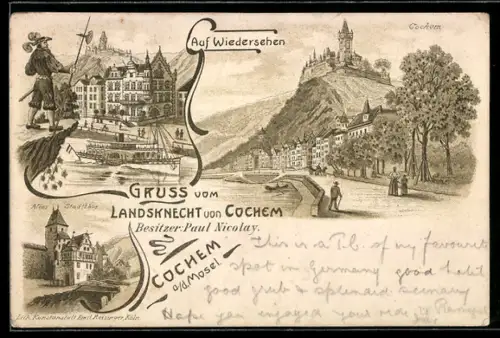 Auf Wiedersehen
Cochem
Altes Stadtthor
GRUSS VOM
LANDSKNECHT VON COCHEM
Besitzer: Paul Nicolay.
COCHEM
a/d Mosel
This is a P.C. of my favourite
spot in Germany good hotel
good grub & splendid scenery
Hope you enjoyed your ride
Lith. Kunstanstalt Köln.